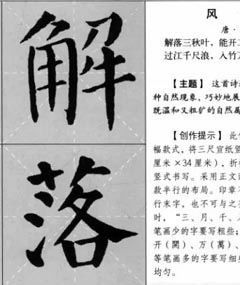 解
落
风
唐·
解落三秋叶，能开
过江千尺浪，入竹
【主题】 这首诗
种自然现象，巧妙地展
既温和又粗犷的自然属
【创作提示】 此
幅款式，将三尺宣纸竖
厘米×34厘米），折
竖式书写。采用正文
款半行的布局。印章
行末字，也不可与之
时，“三、月、千、
笔画少的字要写粗些；
开（開）、万（萬）、
等笔画多的字要写细
均匀。